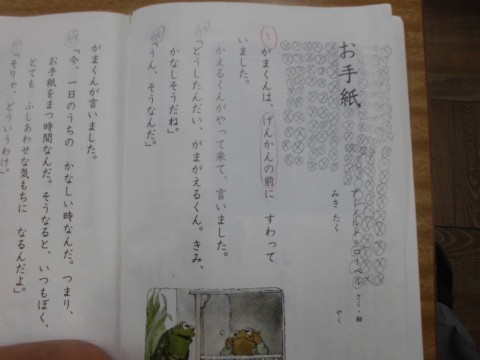 お手紙
アーノルド＝ローベル さく・絵
みき たく やく
がまくんは、げんかんの前に すわって
いました。
かえるくんがやって来て、言いました。
「どうしたんだい、がまがえるくん。きみ、
かなしそうだね」
「うん、そうなんだ。」
がまくんが言いました。
「今、一日のうちの かなしい時なんだ。つまり、
お手紙をまつ時間なんだ。そうなると、いつもぼく、
とても ふしあわせな気もちに なるんだよ。」
「そりゃ、どういうわけ。」